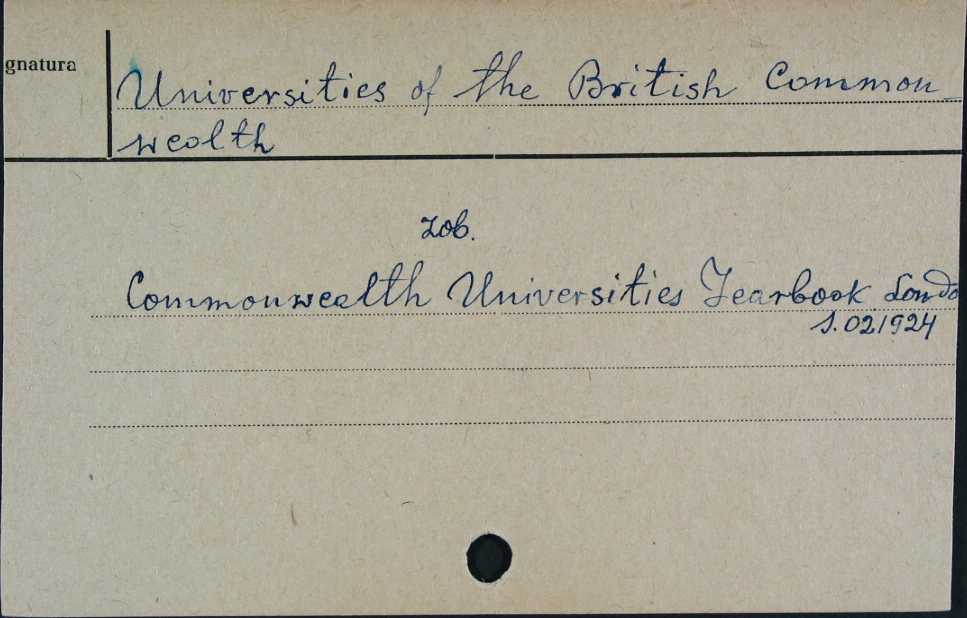 gnatura
Universities of the British Common
wealth
zob.
Commonwealth Universities Yearbook Londo
S.021924